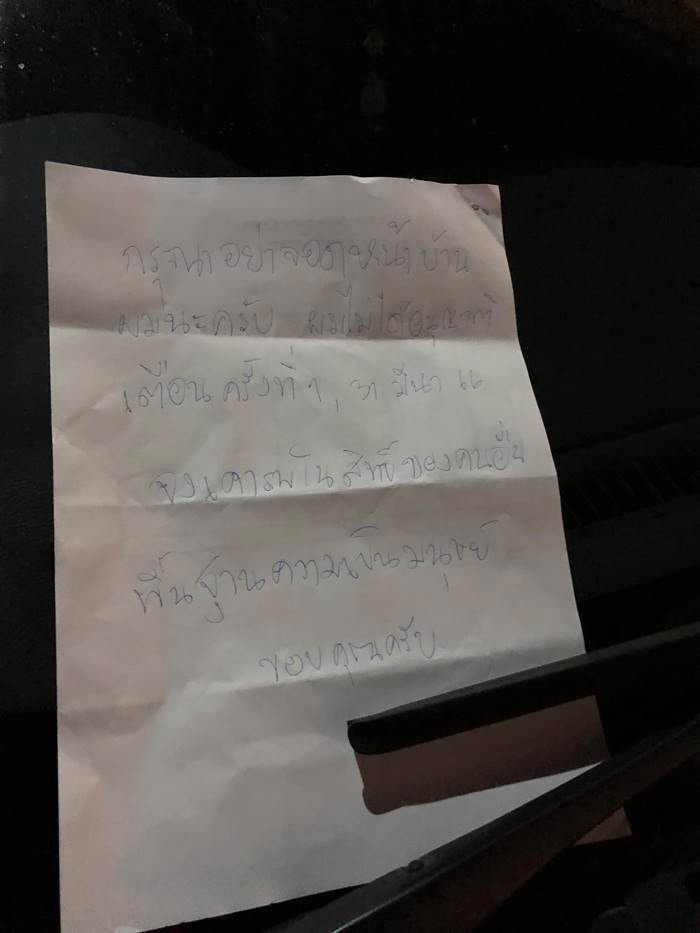 กรุณาอย่าจอดหน้าบ้าน
ผมนะครับ ผมไม่ได้อนุญาติ
เตือนครั้งที่ 1, 31 มีนา 66
จงเคารพในสิทธิ์ของคนอื่น
พื้นฐานความเป็นมนุษย์
ขอบคุณครับ